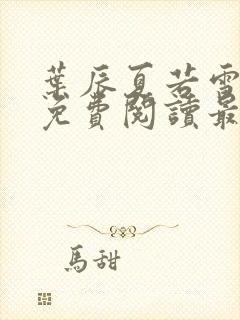 葉辰夏若雪
免費閱讀最
馬甜